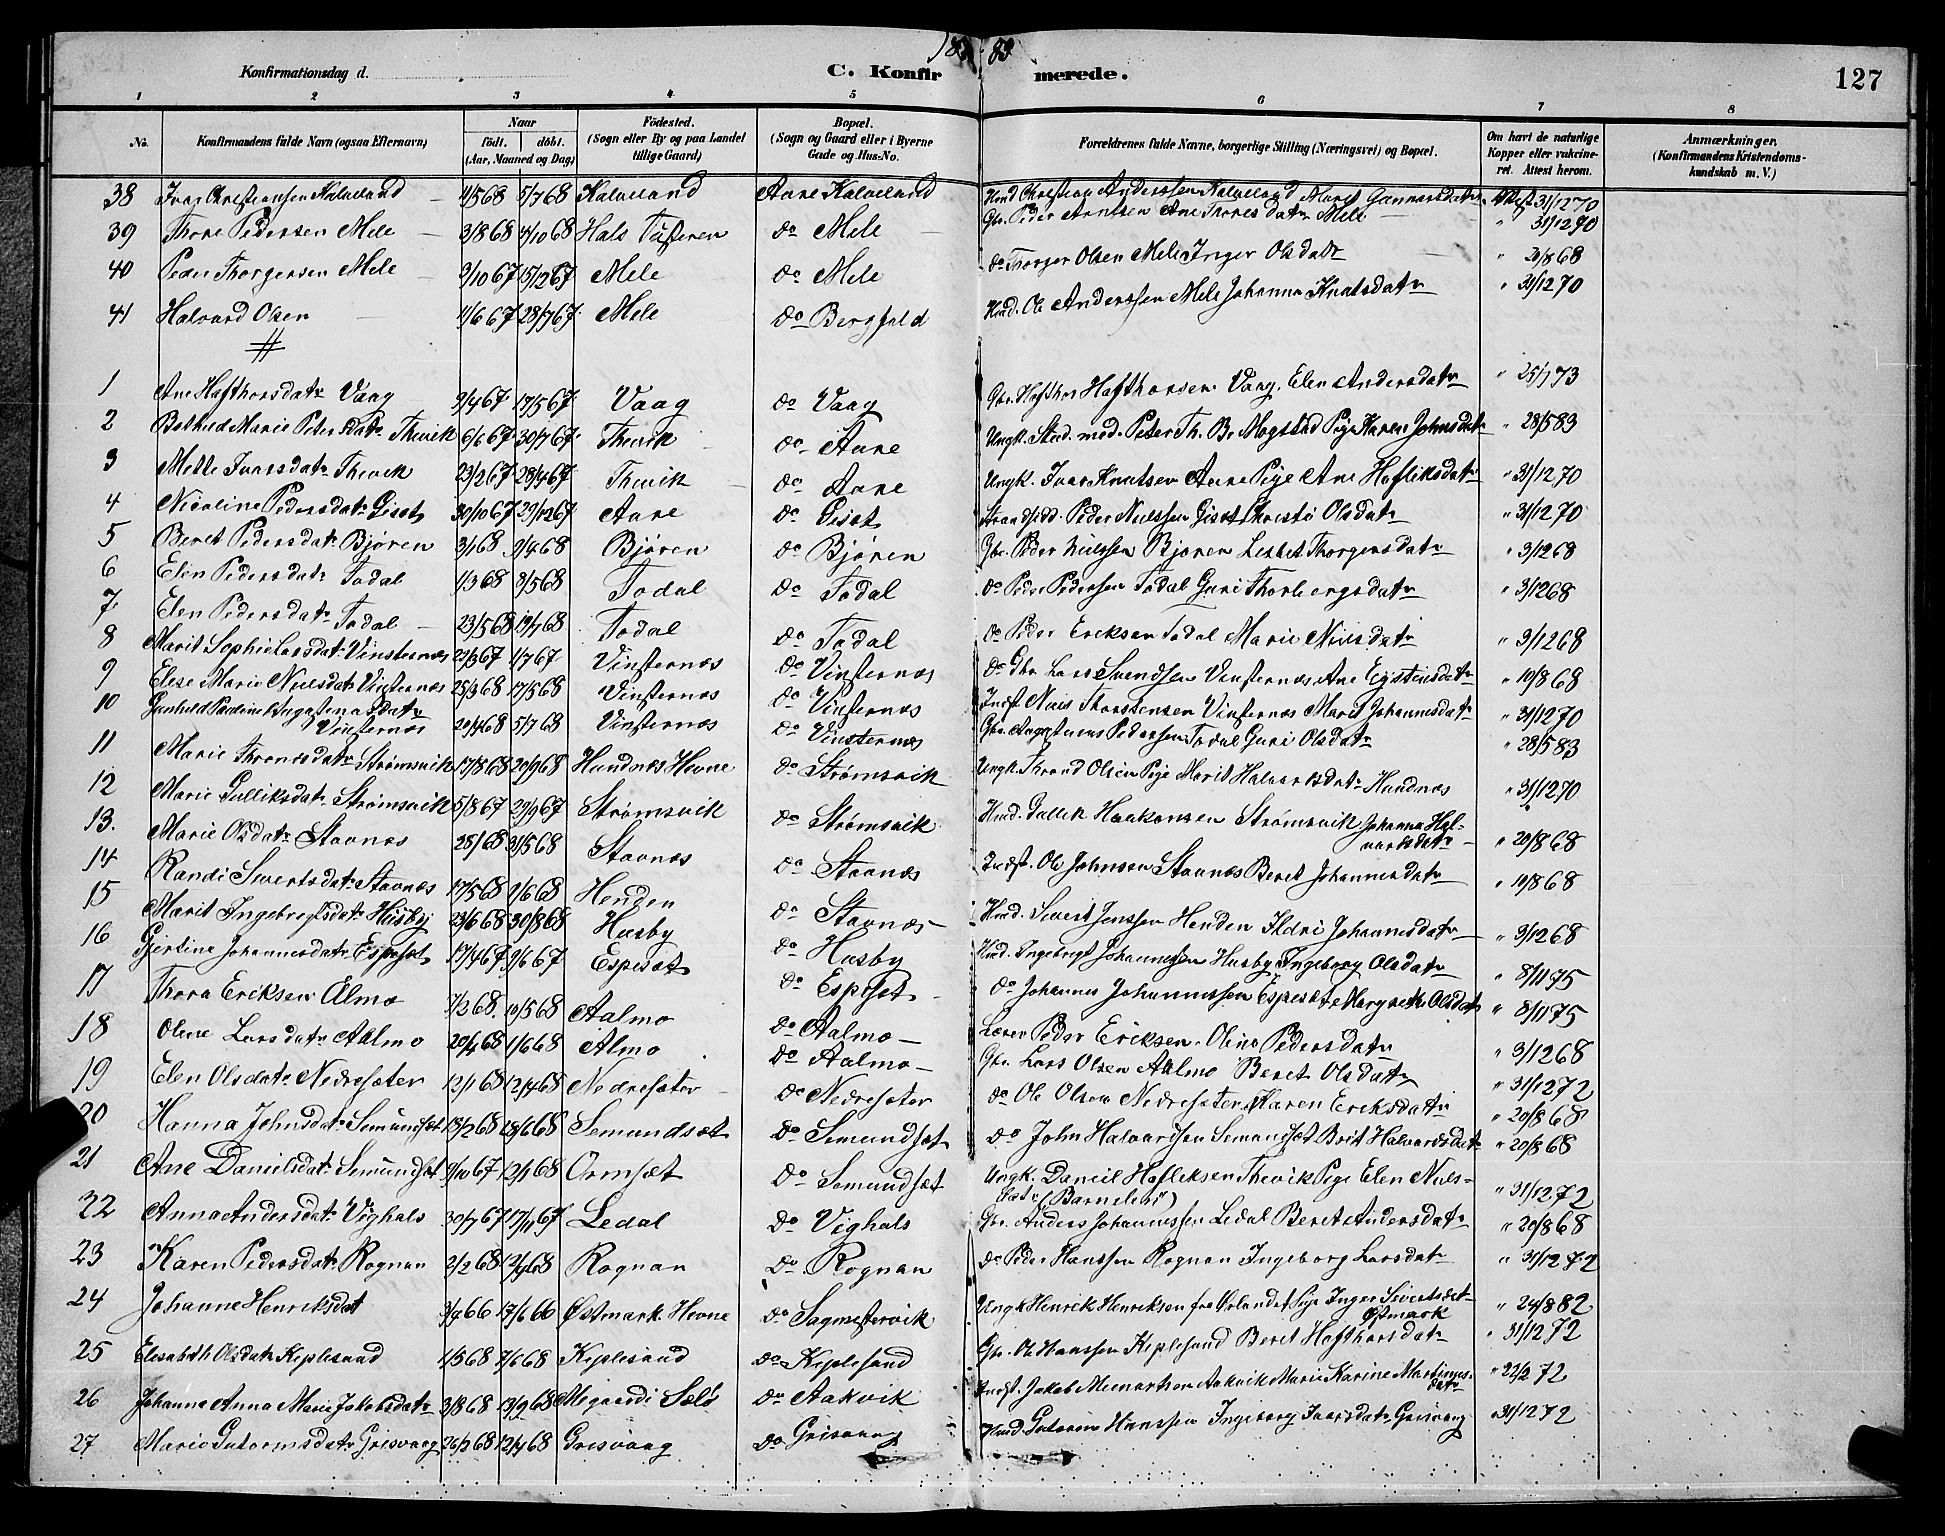 18 83
Konfirmationsdag d. C. Konfirmerede. 127
1 2 3 4 5 6 7 8
No. Konfirmandens fulde Navn (ogsaa Efternavn) Naar födt. döbt. (Aar, Maaned og Dag) Födested. (Sogn eller By og paa Landet tillige Gaard) Bopæl. (Sogn og Gaard eller i Byerne Gade og Hus-No. Forældrenes fulde Navne, borgerlige Stilling (Næringsvei) og Bopæl. Om havt de naturlige Kopper eller vakcineret. Attest herom. Anmærkninger. (Konfirmandens Kristendomskundskab m. V.)
38 Ivar Christiansen Kalveland 1/5 68 5/7 68 Kalveland Aure Kalveland Hmd Christian Anderssen Kalveland Marit Gunnarsdatr Attest 31/12 70
39 Thore Pedersen Mele 3/8 68 4/10 68 Hals Tusteren do Mele Gbr. Peder Arntsen Ane Thoresdatr Mele " 31/12 70
40 Peder Thorgersen Mele 9/10 67 15/12 67 Mele do Mele do Thorger Olsen Mele Inger Olsdatr " 20/8 68
41 Halvard Olsen 1/6 67 28/7 67 Mele do Bergfald Hmd. Ole Anderssen Mele Johanna Knutsdatr " 31/12 70
1 Ane Hafthorsdatr Vaag 9/4 67 17/5 67 Vaag do Vaag Gbr. Hafthor Hafthorsen Vaag, Elen Andersdatr " 25/1 73
2 Bothild Marie Petersdatr Thevik 6/6 67 30/7 67 Thevik do Aure Ungk. Stud. med. Peter Th. Br. Mogstad Pige Karen Johnsdatr " 28/5 83
3 Mette Ivarsdatr Thevik 23/2 67 28/4 67 Thevik do Aure Ungk. Ivar Knutsen Aure Pige Ane Hafliksdatr " 31/12 70
4 Nicoline Pedersdatr Giset 30/10 67 29/12 67 Aure do Giset Strandsidd. Peder Nielssen Giset Christø Olsdatr " 31/12 70
5 Beret Pedersdatr Bjøren 3/1 68 9/4 68 Bjøren do Bjøren Gbr. Peder Nielssen Bjøren Lesbet Thorgersdatr " 3/12 68
6 Elen Pedersdatr Todal 1/3 68 3/5 68 Todal do Todal do Peder Pedersen Todal Guri Thorbergsdatr " 3/12 68
7 Elen Pedersdatr Todal 23/5 68 19/7 68 Todal do Todal do Peder Ericksen Todal Marie Nielsdatr " 3/12 68
8 Marit Sophie Larsdatr Vinsternæs 22/3 67 1/7 67 Vinsternæs do Vinsternæs do Gbr Lars Svendsen Vinsternæs Ane Eistensdatr " 19/8 68
9 Elise Marie Nielsdatr Vinsternæs 25/3 68 17/5 68 Vinsternæs do Vinsternæs Indst Niels Thorstensen Vinsternæs Marit Johannesdatr " 31/12 70
10 Gunhild Pauline Augustinusdatr Vinsternæs 20/4 68 5/7 68 Vinsternæs do Vinsternæs Gbr. Augustinus Pederssen Todal Guri Olsdatr " 28/5 83
11 Marie Thronsdatr Strømsvik 17/8 68 20/9 68 Hundnæs Hevne do Strømsvik Ungk. Thrond Olsen Pige Marit Halvarsdatr Hundnæs " 31/12 70
12 Marie Gulliksdatr Strømsvik 5/8 67 29/9 67 Strømsvik do Strømsvik Hmd. Gullik Haakonsen Strømsvik Johanna Halvardsdatr " 20/8 68
13. Marie Olsdatr Stavnæs 28/1 68 31/5 68 Stavnæs do Stavnæs Indst. Ole Johnsen Stavnæs Beret Johannesdatr " 19/8 68
14 Randi Sivertsdatr Stavnæs 17/5 68 9/6 68 Henden do Stavnæs Hmd. Sivert Jenssen Henden Ildri Johannesdatr " 3/12 68
15 Marit Ingebregtsdatr Husby 23/6 68 30/8 68 Husby do Husby Hmd. Ingebregt Johannessen Husby Ingeborg Olsdatr " 8/11 75
16 Gjertine Johannesdatr Espeset 17/4 67 9/6 67 Espesæt do Espeset do Johannes Johannessen Espesæt Margreth Olsdatr " 8/11 75
17 Thora Eriksen Almo 7/2 68 10/5 68 Aalmo do Aalmo Lærer Peder Eriksen Oline Pedersdatr " 3/12 68
18 Oline Larsdatr Aalmo 20/4 68 1/6 68 Almo do Aalmo Gbr. Lars Olsen Aalmo Beret Olsdatr " 31/12 72
19 Elen Olsdatr Nedresæter 12/1 68 12/4 68 Nedresæter do Nedresæter do Ole Olsen Nedresæter Karen Ericksdatr " 20/8 68
20 Hanna Johnsdatr Semundsæt 13/2 68 13/6 68 Semundsæt do Semundsæt do John Halvardsen Semundsæt Brit Halvardsdatr " 20/8 68
21 Ane Danielsdatr Semundsæt 9/10 67 12/1 68 Ormsæt do Semundsæt Ungk. Daniel Hafliksen Thevik Pige Elen Nielsdatr (Barnelem") " 31/12 72
22 Anna Andersdatr Vighals 30/7 67 17/11 67 Ledal do Vighals Gbr. Anders Johannessen Ledal Beret Andersdatr " 20/8 68
23 Karen Pedersdatr Rognan 2/2 68 12/4 68 Rognan do Rognan do Peder Hanssen Rognan Ingeborg Larsdatr " 31/12 72
24 Johanne Henriksdat 3/4 66 17/6 66 Østmark Hevne do Sagmestervik Ungk Henrik Henriksen fra Ørlandet Pige Inger Sivertsdat Østmark " 24/8 82
25 Elisabeth Olsdatr Kiplesund 1/5 68 7/6 68 Kiplesund do Kiplesund Gbr. Ole Hanssen Kiplesund Beret Hafthorsdatr " 31/12 72
26 Johanna Anna Marie Jakobsdatr 3/8 68 13/9 68 Møgaard i Sælø do Aakvik Indst. Jakob Aakvik Marie Karine Martinusdatr " 22/2 72
27 Marie Gutormsdatr Grisvaag 26/2 68 12/4 68 Grisvaag do Grisvaag Hmd. Gutorm Hanssen Ingeborg Ivarsdatr Grisvaag " 31/12 72